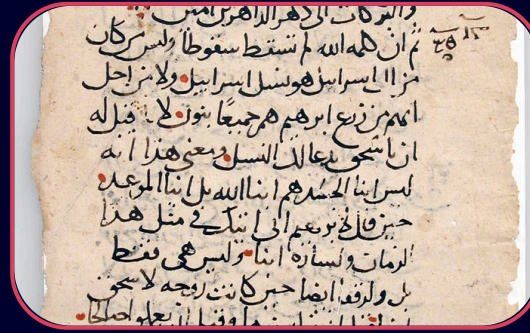 والبركات الى دهر الداهرين امين
ثم ان كلمه الله لم تسقط سقوطا وليس من كان
من ال اسراييل هو نسل اسراييل ولا من اجل
انهم من زرع ابرهيم هم جميعا بنون لا قيل له
ان باسحق يدعا لك النسل ومعنى هذا انه
ليس ابنا الجسد هم ابنا الله بل ابنا الموعد
حين قيل لابرهيم انى اتيك في مثل هذا
الزمان ولساره ابنا وليس هى فقط
بل ورفقا ايضا حين كانت زوجه لاسحق